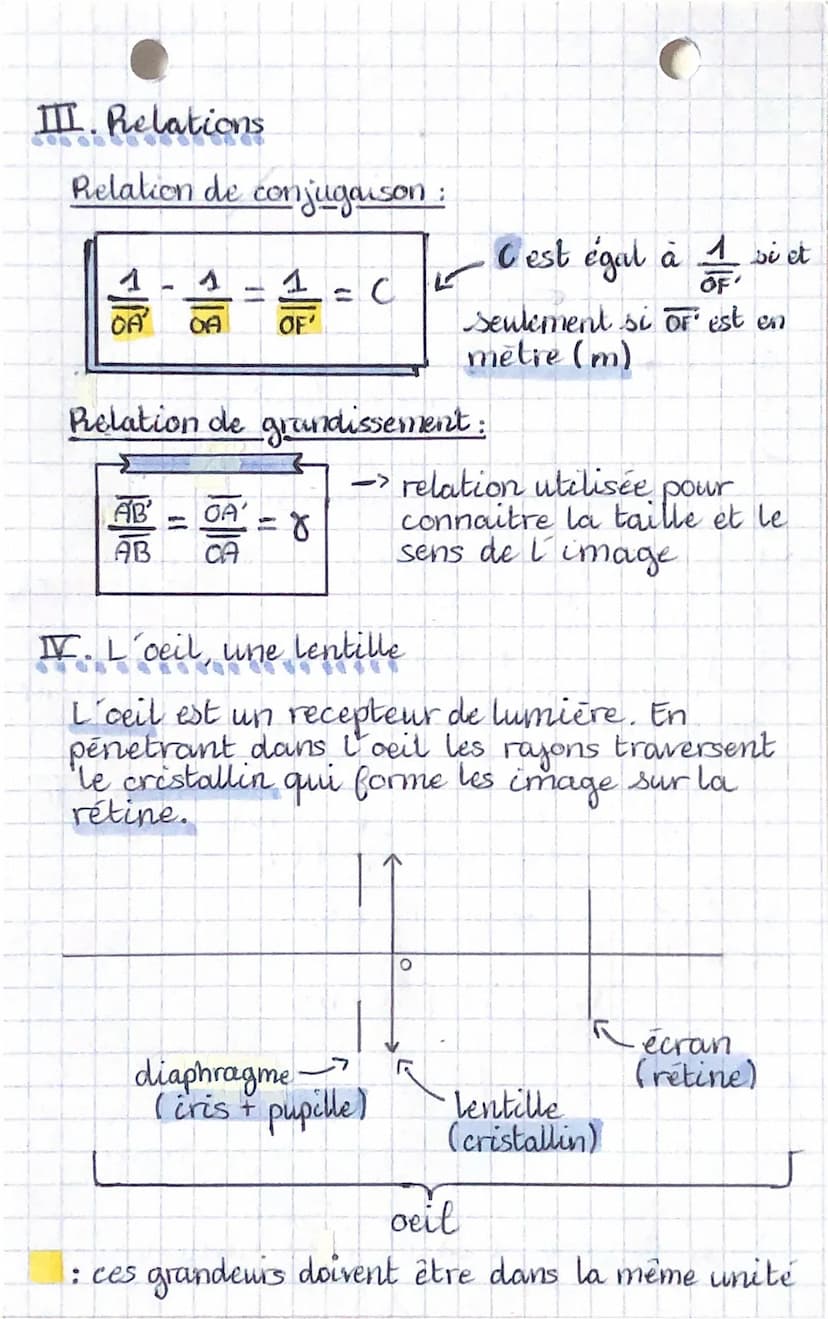 III. Relations
Relation de conjugaison :
1/OA' - 1/OA = 1/OF' = C
C est égal à 1/OF' si et
seulement si OF' est en
mètre (m)
Relation de grandissement :
AB'/AB = OA'/OA = γ
→ relation utilisée pour
connaitre la taille et le
sens de l'image
IV. L'oeil, une lentille
L'oeil est un recepteur de lumière. En
pénetrant dans l'oeil les rayons traversent
le cristallin qui forme les image sur la
rétine.
O
diaphragme
(iris + pupille)
lentille
(cristallin)
écran
(rétine)
oeil
: ces grandeurs doivent être dans la même unité